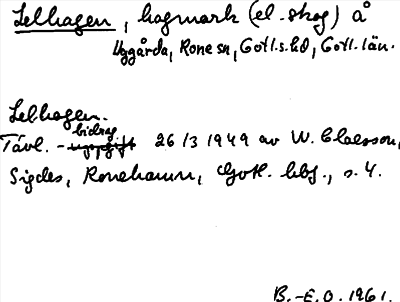 Lelhagen, hagmark (el. skog) å
Uggårda, Rone sn, Gotl.s. hd, Gotl. län.
Lelhagen.
bidrag
Tävl. - uppgift 26/3 1949 av W. Claesson,
Sigdes, Ronehamn, Gotl. hbf., s. 4.
B.-E.O. 1961.